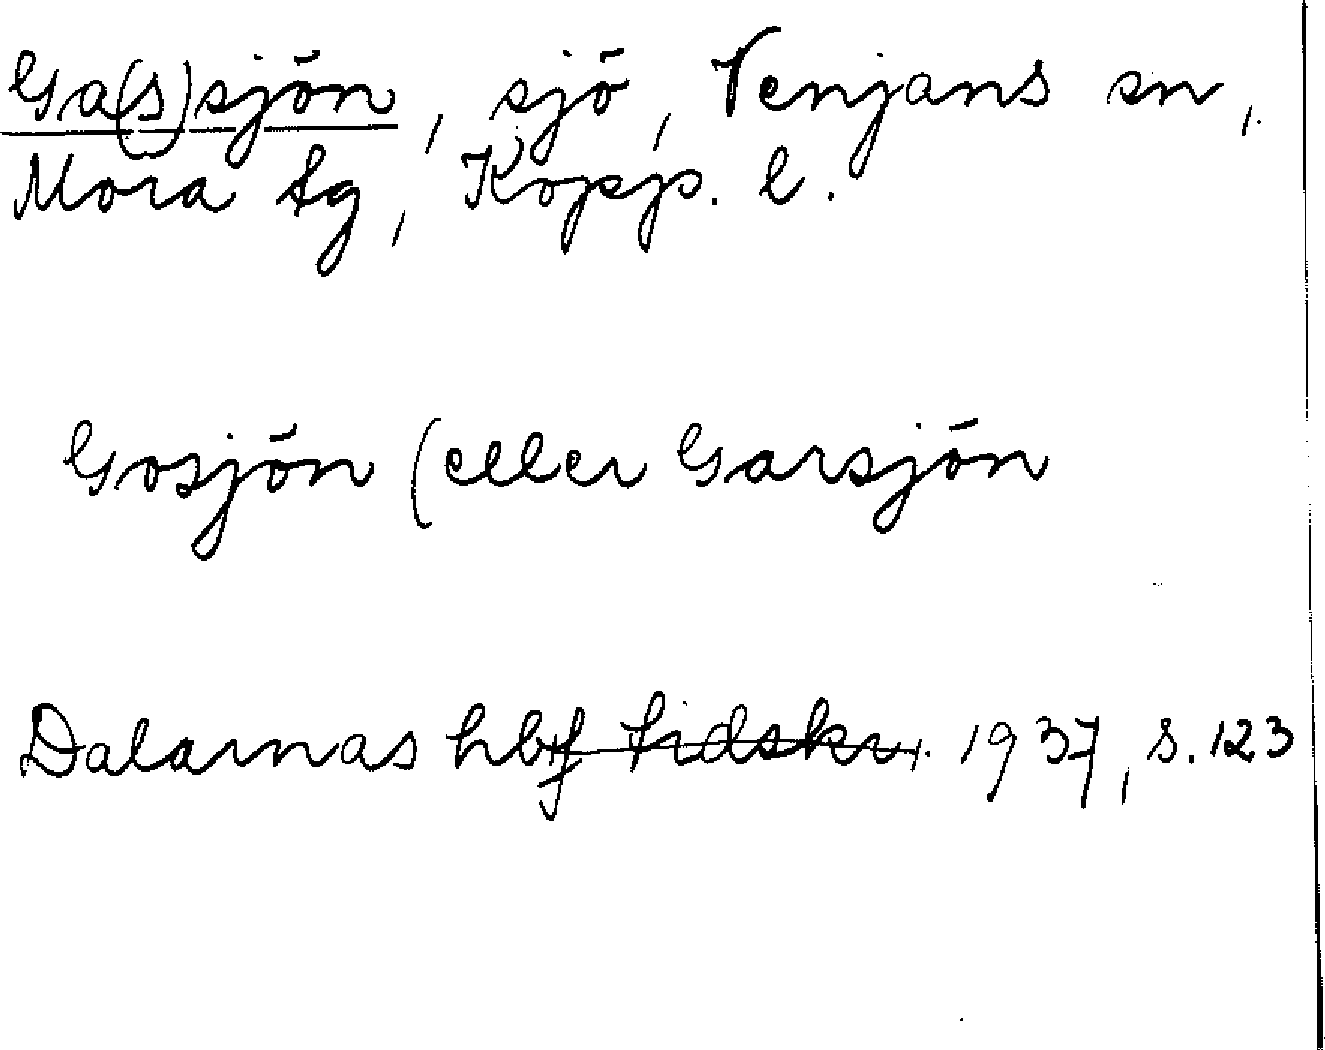 Ga(s)sjön, sjö, Venjans sn,
Mora tg, Kopp. l.
Gosjön (eller Garsjön
Dalarnas hbf tidskr. 1937, s. 123